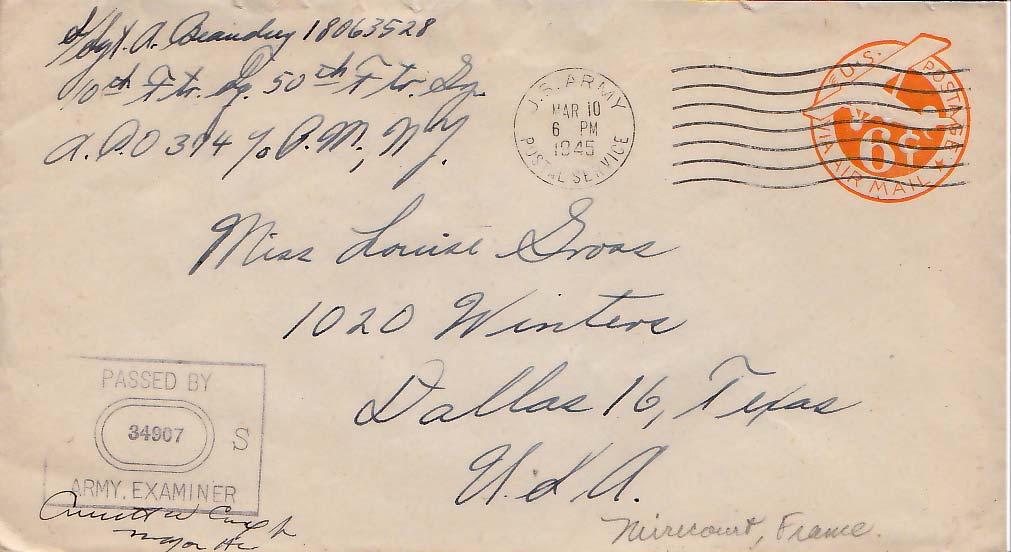 S/Sgt. A. Beaudry 18063528
10th Ftr. Sq. 50th Ftr. Gp.
A.P.O 394 % P.M., N.Y.
U.S. ARMY
MAR 10
6 PM
1945
POSTAL SERVICE
U.S. POSTAGE
6¢
VIA AIR MAIL
Miss Louise Gross
1020 Winters
Dallas 16, Texas
U.S.A.
PASSED BY
34907 S
ARMY EXAMINER
Major
Mirecourt, France.